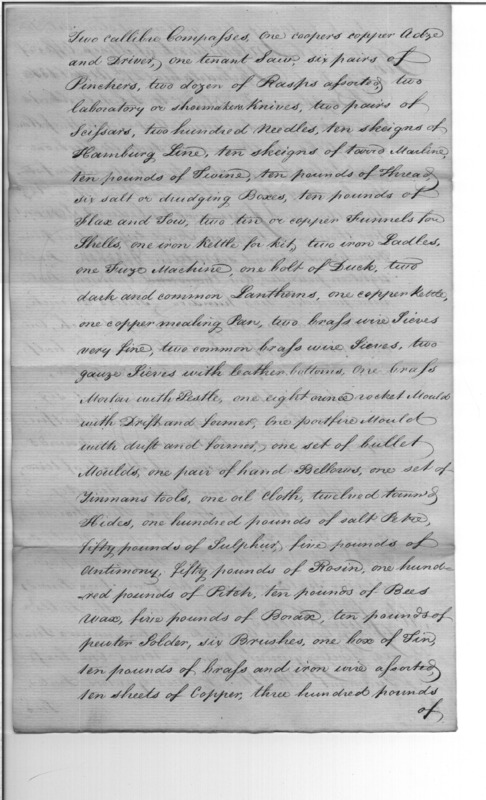 Two callibre Compasses, one coopers copper Adze
and Driver, one tenant Saw, six pairs of
Pinchers, two dozen of Rasps assorted, two
laboratory or shoemakers Knives, two pairs of
Scissars, two hundred Needles, ten skeigns of
Hamburg Line, ten skeigns of tarrd Marline,
ten pounds of Twine, ten pounds of Thread,
six salt or drudging Boxes, ten pounds of
Flax and Tow, two tin or copper Funnels for
Shells, one iron Kettle for kit, two iron Ladles,
one Fuze Machine, one bolt of Duck, two
dark and common Lanthorns, one copper Kettle,
one copper mealing Pan, two brass wire Sieves
very fine, two common brass wire Sieves, two
gauze Sieves with leather bottoms, One brass
Mortar with Pestle, one eight ounce rocket Mould
with Drift and former, One portfire Mould
with drift and former, one set of bullet
Moulds, one pair of hand Bellows, one set of
Tinmans tools, one oil Cloth, twelve tannd
Hides, one hundred pounds of salt Petre,
fifty pounds of Sulphur, five pounds of
Antimony, fifty pounds of Rosin, one hund-
-red pounds of Pitch, ten pounds of Bees
Wax, five pounds of Borax, ten pounds of
pewter Solder, six Brushes, one box of Tin,
ten pounds of brass and iron wire assorted,
ten sheets of Copper, three hundred pounds
of